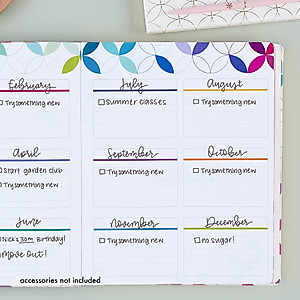 February
Try something new
April
Start garden club
Try something new
June
Nick's 30th Birthday!
Move Out!
July
Summer classes
September
Try something new
November
Try something new
August
Try something new
October
Try something new
December
no sugar!
accessories not included